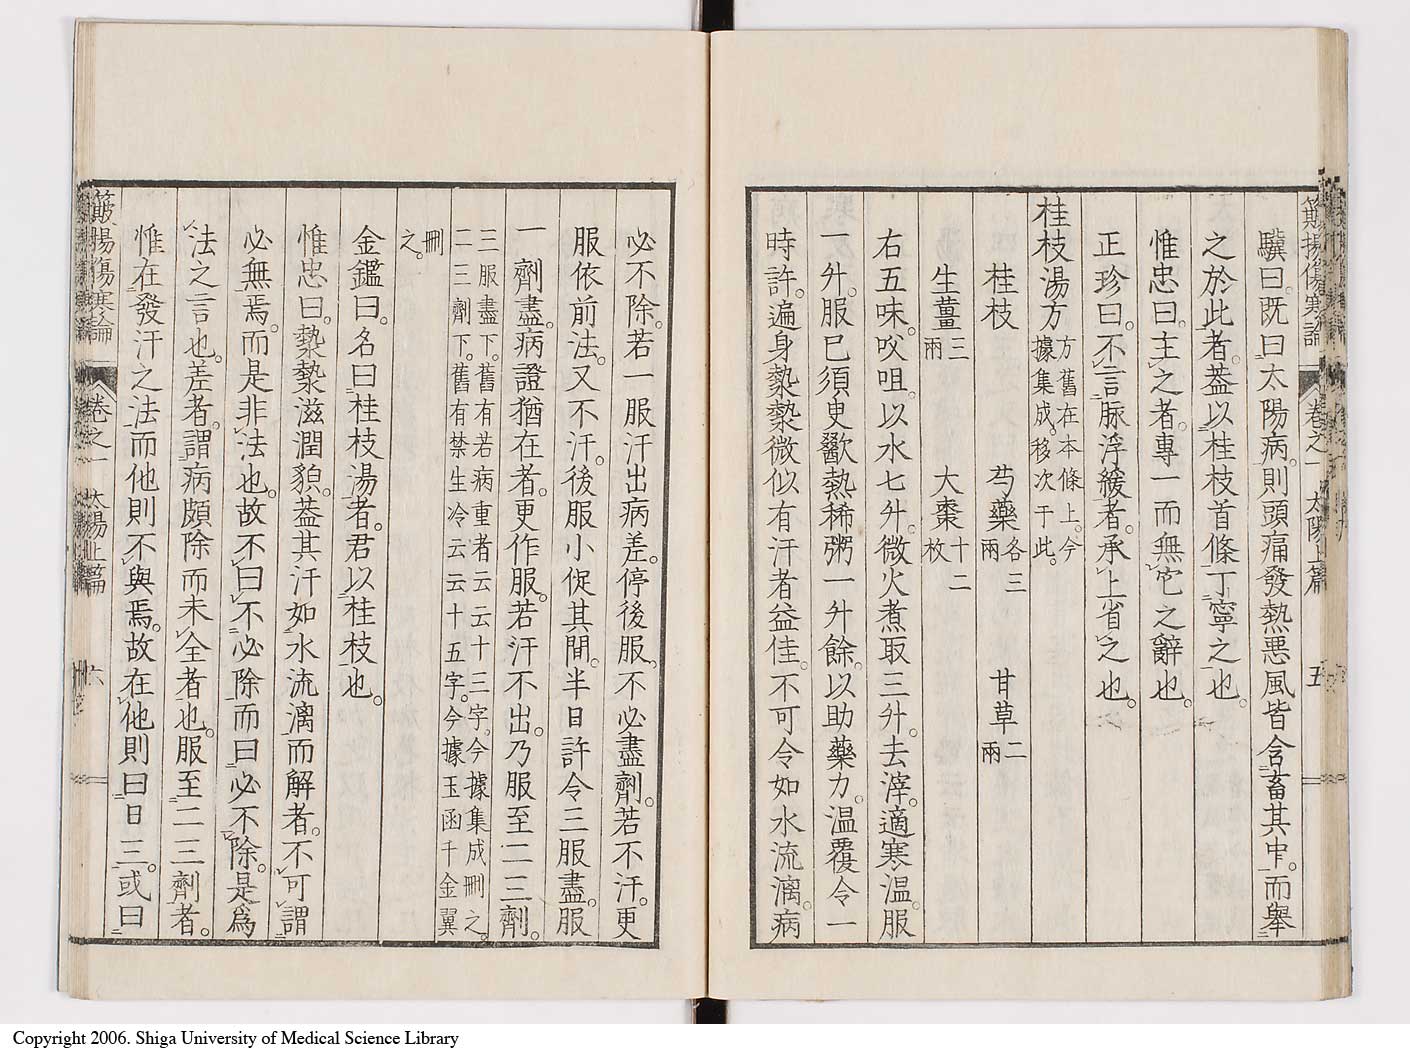 驥曰。既曰太陽病。則頭痛發熱悪風皆含畜其中。而舉
之於此者。葢以桂枝首條丁寧之也。
惟忠曰。主之者。專一而無它之辭也。
正珍曰。不言脈浮緩者。承上省之也。
桂枝湯方 方舊在本條上。今據集成。移次于此。
桂枝 芍藥各三兩 甘草二兩
生薑三兩 大棗十二枚
右五味。㕮咀。以水七升。微火煮取三升。去滓。適寒温。服
一升。服已須臾。歠熱稀粥一升餘。以助藥力。温覆令一
時許。遍身漐漐微似有汗者益佳。不可令如水流漓。病
簸揚傷寒論 卷之一 太陽上篇 五
必不除。若一服汗出病差。停後服。不必盡劑。若不汗。更
服依前法。又不汗。後服小促其間。半日許令三服盡。服
一劑盡。病證猶在者。更作服。若汗不出。乃服至二三劑。
三服盡下。舊有若病重者云云十三字。今據集成刪之。
二三劑下。舊有禁生冷云云十五字。今據玉函千金翼
刪之。
金鑑曰。名曰桂枝湯者。君以桂枝也。
惟忠曰。漐漐滋潤貌。葢其汗如水流漓而解者。不可謂
必無焉。而是非法也。故不曰不必除而曰必不除。是爲
法之言也。差者。謂病頗除而未全者也。服至二三劑者。
惟在發汗之法而他則不與焉。故在他則曰日三。或曰
簸揚傷寒論 卷之一 太陽上篇 六
Copyright 2006. Shiga University of Medical Science Library